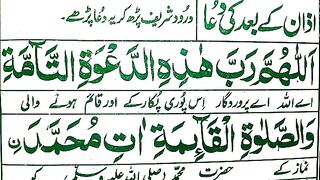 اذان کے بعد کی دعا
درود شریف پڑھ کر یہ دعا پڑھے۔
اَللّٰهُمَّ رَبَّ هٰذِهِ الدَّعْوَةِ التَّآمَّةِ
اے اللہ اے پروردگار اس پوری پکار کے اور قائم ہونے والی
وَالصَّلٰوةِ الْقَآئِمَةِ اٰتِ مُحَمَّدَ نِ
نماز کے حضرت محمد (صلی اللہ علیہ وسلم) کو